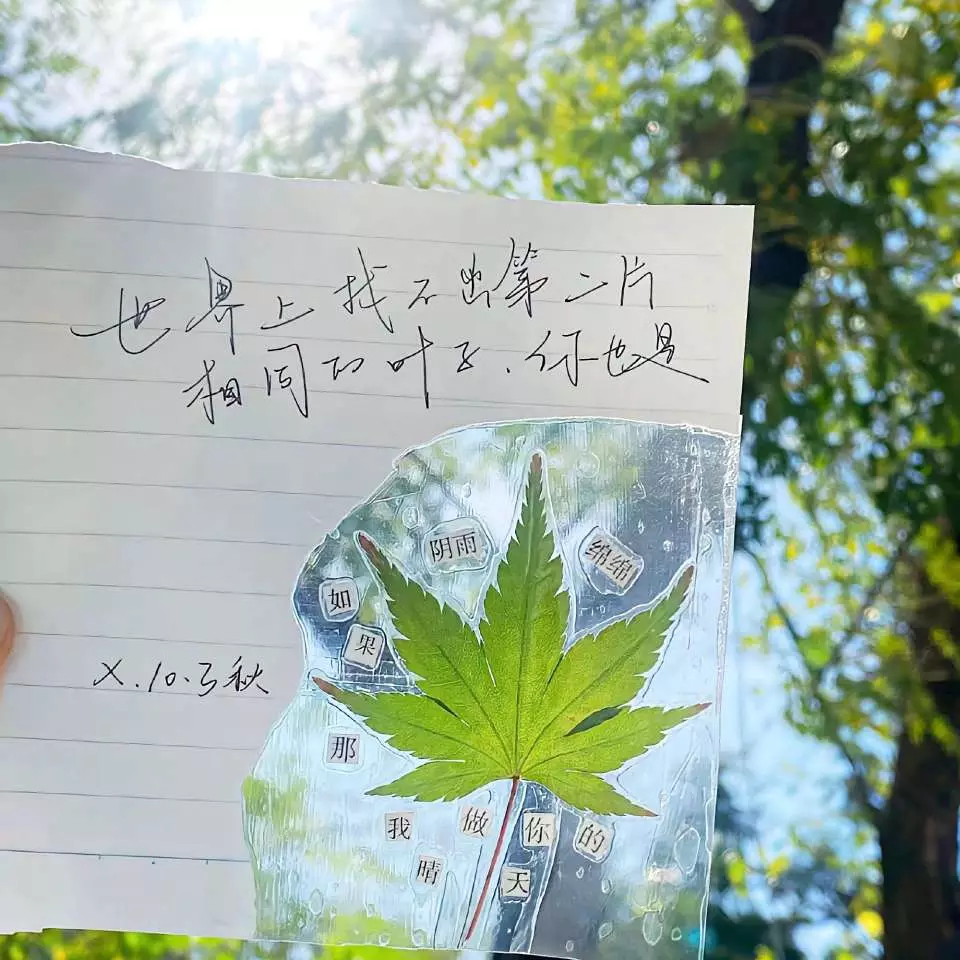 世界上找不出第二片
相同的叶子.你也是
X.10.3秋
如果
阴雨
绵绵
那
我做你的
晴天